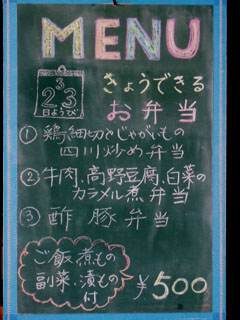 MENU
3
23
日ようび
きょうできる
お弁当
① 鶏細切とじゃがいもの
四川炒め弁当
② 牛肉、高野豆腐、白菜の
カラメル煮弁当
③ 酢豚弁当
ご飯煮もの
副菜、漬もの
付
¥500